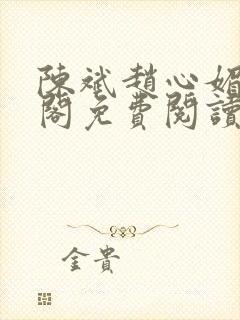 陳斌趙心媚
閣免費閱讀
金貴